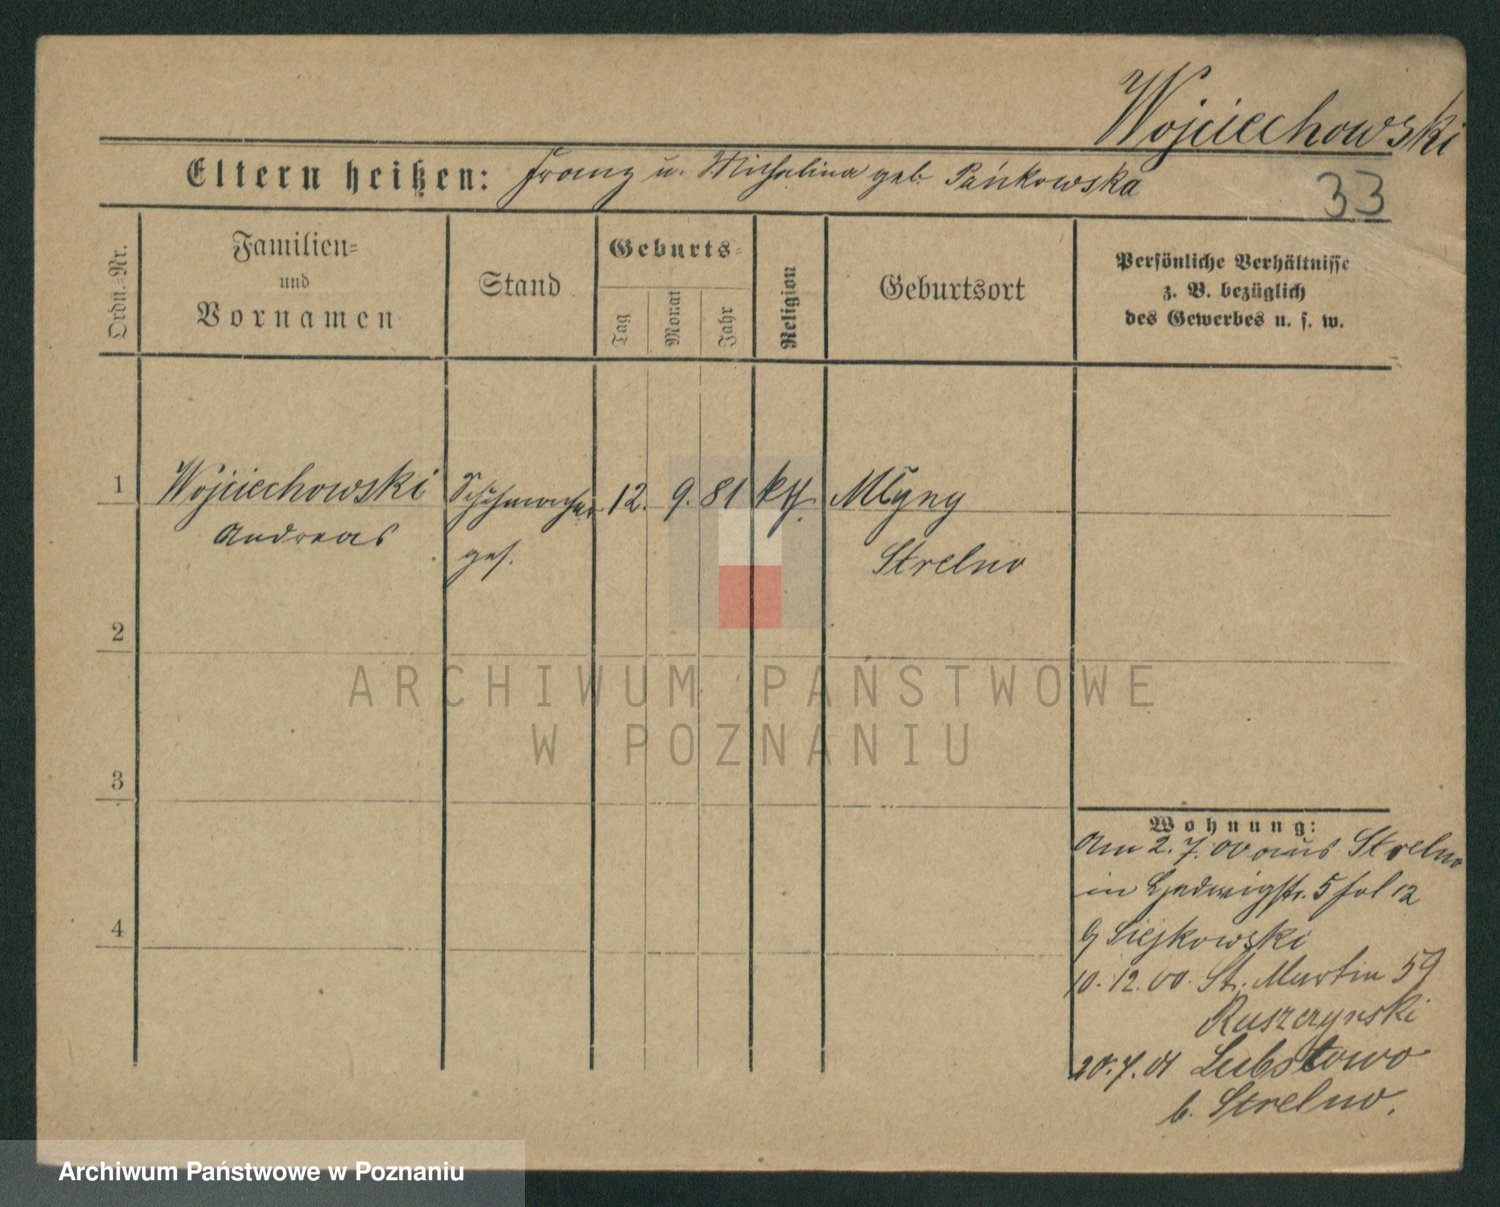 Wojciechowski
Eltern heißen: Franz u. Michalina geb. Pańkowska
33
Ordn.-Nr.
Familien-
und
Vornamen
Stand
Geburts-
Tag
Monat
Jahr
Religion
Geburtsort
Persönliche Verhältnisse
z. B. bezüglich
des Gewerbes u. s. w.
1 Wojciechowski Schuhmacher 12. 9. 81 kth. Młyny
Andreas ges. Strelno
2
3
4
Wohnung:
Am 2.7.00 aus Strelno
in Hedwigstr. 5 fol 12
Siejkowski
10.12.00. St. Martin 59
Ruszczynski
20.7.01 Lubstowo
b. Strelno.
ARCHIWUM PAŃSTWOWE
W POZNANIU
Archiwum Państwowe w Poznaniu